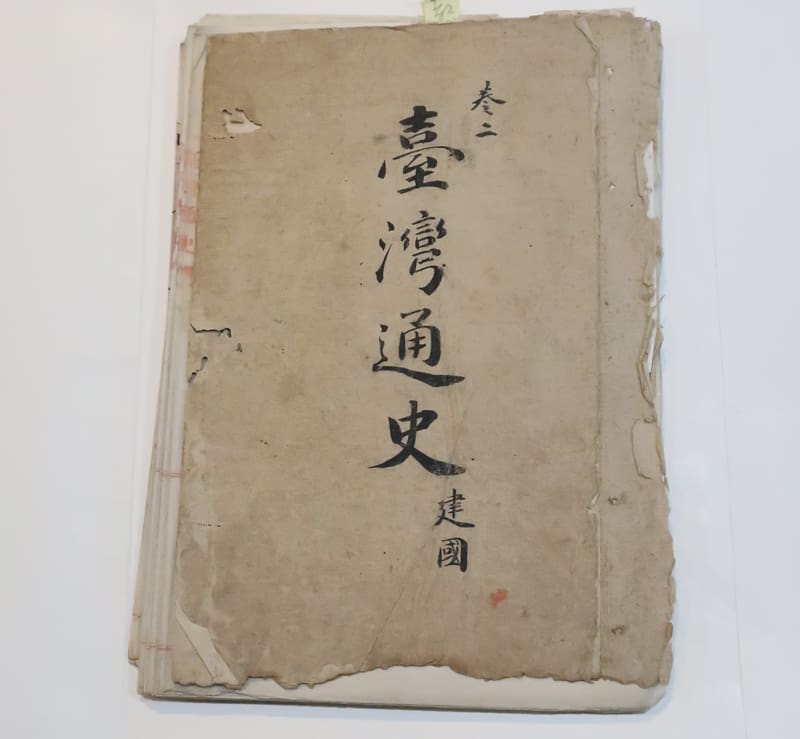 卷二
臺灣通史
建國